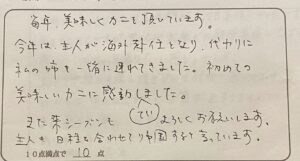 毎年、美味しくカニを頂いています。
今年は主人が海外赴任となり、代わりに
私の姉を一緒に連れてきました。初めての
美味しいカニに感動しました。
てい
また来シーズンもよろしくお願いします。
主人も日程を合わせて帰国すると言っています。
10点満点で 10 点